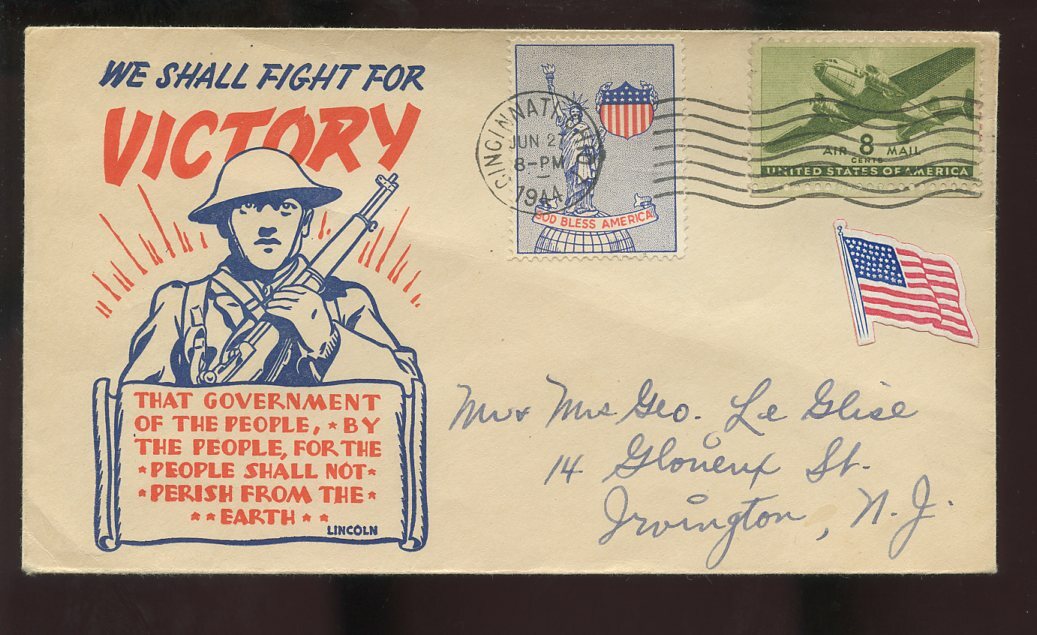 WE SHALL FIGHT FOR
VICTORY
THAT GOVERNMENT
OF THE PEOPLE, * BY
THE PEOPLE, FOR THE
* PEOPLE SHALL NOT *
* PERISH FROM THE *
* * EARTH * *
LINCOLN
CINCINNATI, OHIO
JUN 27
8-PM
1944
GOD BLESS AMERICA
AIR 8 MAIL
CENTS
UNITED STATES OF AMERICA
Mr & Mrs Geo. Le Glise
14 St.
Irvington, N. J.